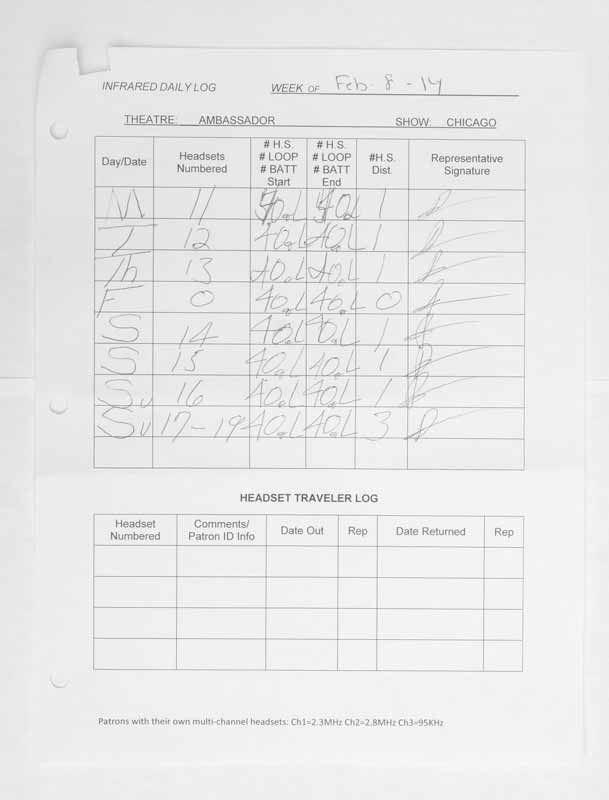 INFRARED DAILY LOG WEEK OF Feb. 8 - 14
THEATRE: AMBASSADOR SHOW: CHICAGO
Day/Date Headsets Numbered # H.S. # LOOP # BATT Start # H.S. # LOOP # BATT End #H.S. Dist. Representative Signature
M 11 1
T 12 1
Th 13 1
F 0 0
S 14 1
S 15 1
Su 16 1
Su 17-19 3
HEADSET TRAVELER LOG
Headset Numbered Comments/ Patron ID Info Date Out Rep Date Returned Rep
Patrons with their own multi-channel headsets: Ch1=2.3MHz Ch2=2.8MHz Ch3=95KHz